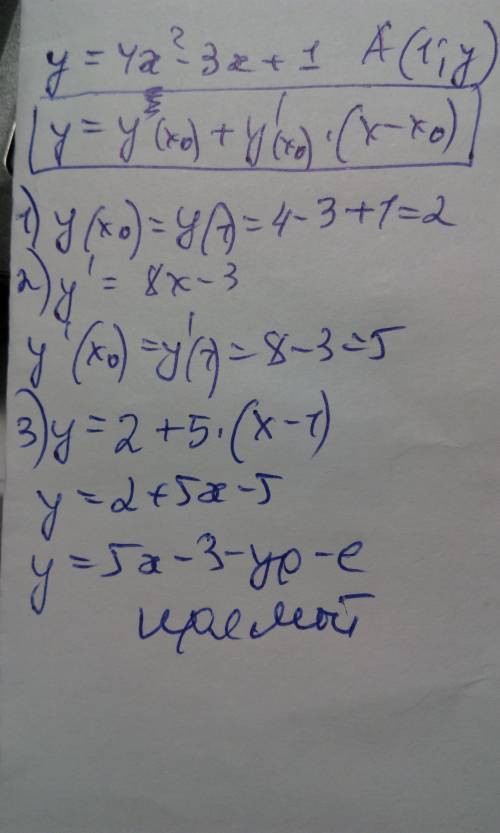 y = 4x² - 3x + 1 A(1; y)
y = y(x₀) + y'(x₀) · (x - x₀)
1) y(x₀) = y(1) = 4 - 3 + 1 = 2
2) y' = 8x - 3
y'(x₀) = y'(1) = 8 - 3 = 5
3) y = 2 + 5 · (x - 1)
y = 2 + 5x - 5
y = 5x - 3 - ур-е